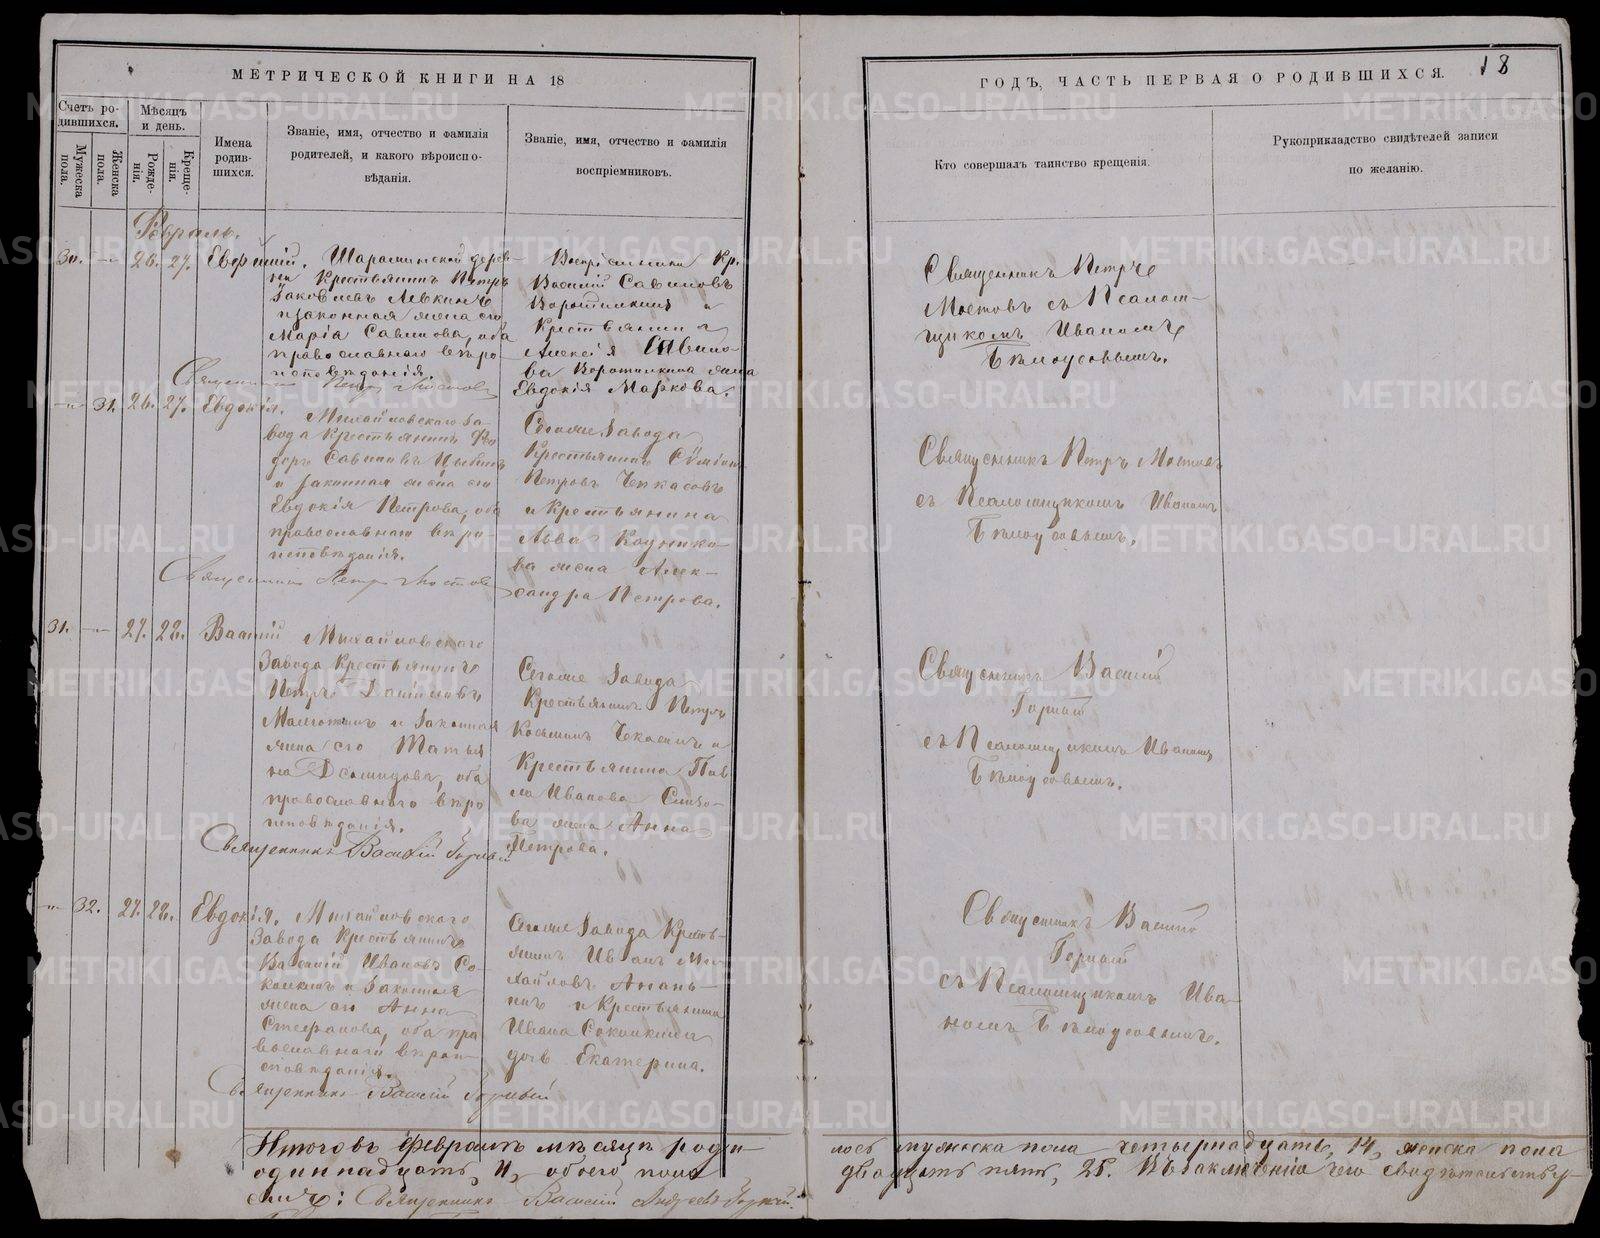 МЕТРИЧЕСКОЙ КНИГИ НА 18
ГОДЪ, ЧАСТЬ ПЕРВАЯ О РОДИВШИХСЯ.
18
Счетъ ро-
дившихся.
Мужеска
пола.
Женска
пола.
Мѣсяцъ
и день.
Рожде-
нія.
Креще-
нія.
Имена
родив-
шихся.
Званіе, имя, отчество и фамилія
родителей, и какого вѣроиспо-
вѣданія.
Званіе, имя, отчество и фамилія
воспріемниковъ.
Кто совершалъ таинство крещенія.
Рукоприкладство свидѣтелей записи
по желанію.
30. 26. 27.
Шарашинской дерев-
ни Крестьянинъ Петръ
Іаковлевъ Левкинъ
и законная жена его
Марія Саввинова, оба
православнаго вѣро
исповѣданія.
Священникъ Петръ Мостовъ
Кр.
Василій Саввиновъ
Воротилкинъ и
Крестьянина
Алексія Саввино-
ва Воротилкина жена
Евдокія Маркова.
Священникъ Петръ
Мостовъ съ Псалом-
щикомъ Иваномъ
Бѣлоусовымъ.
31. 26. 27. Евдокія.
Михайловскаго За-
вода Крестьянинъ Ѳео
доръ Саввиновъ
и законная жена его
Евдокія Петрова, оба
православнаго вѣро-
исповѣданія.
Священникъ Петръ Мостовъ
Сегоже Завода
Крестьянинъ Сѵмеонъ
Петровъ Чекасовъ
и Крестьянина
Льва
ва жена Алек-
сандра Петрова.
Священникъ Петръ Мостовъ
съ Псаломщикомъ Иваномъ
Бѣлоусовымъ.
31. 27. 28. Василій
Михайловскаго
Завода Крестьянинъ
Петръ Даніиловъ
и законная
жена его Татья
на Демидова, оба
православнаго вѣро
исповѣданія.
Священникъ Василій Горный
Сегоже Завода
Крестьянинъ Петръ
Косьминъ Чекасинъ и
Крестьянина Пав
ла Иванова
ва жена Анна
Петрова.
Священникъ Василій
Горный
съ Псаломщикомъ Иваномъ
Бѣлоусовымъ.
32. 27. 28. Евдокія.
Михайловскаго
Завода Крестьянинъ
Василій Ивановъ Со-
колкинъ и законная
жена его Анна
Стефанова, оба пра
вославнаго вѣрои-
сповѣданія.
Священникъ Василій Горный
Сегоже Завода Кресть-
янинъ Иванъ Ми-
хайловъ Анань-
инъ и Крестьянина
Ивана Соколкина
дочь Екатерина.
Священникъ Василій
Горный
съ Псаломщикомъ Ива-
номъ Бѣлоусовымъ.
Итого въ февралѣ мѣсяцѣ роди-
лось мужеска пола четырнадцать, 14, женска пола
одиннадцать, 11, обоего пола
двадцать пять, 25. Въ заключеніе чего свидѣтельству-
емъ: Священникъ Василій Андреевъ Горный.
METRIKI.GASO-URAL.RU